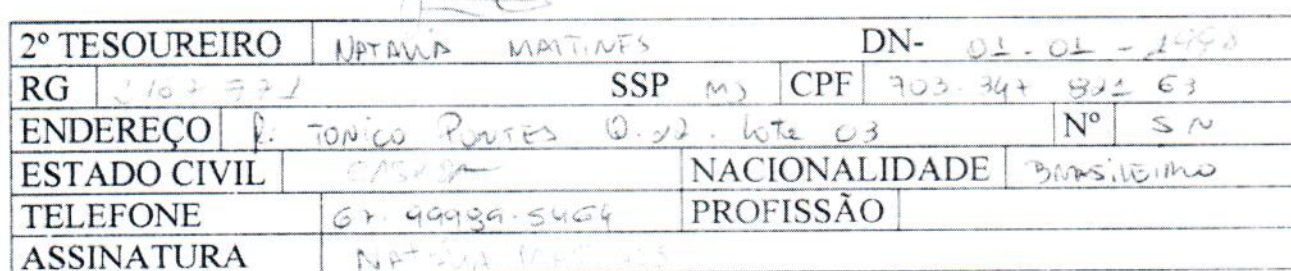 2º TESOUREIRO NATALIA MARTINES DN- 01.01-1998
RG SSP MS CPF 703.347 821 63
ENDEREÇO R: TONICO PONTES Q.02. LOTE 03 Nº SN
ESTADO CIVIL CASADA NACIONALIDADE BRASILEIRO
TELEFONE 67.99989.5464 PROFISSÃO
ASSINATURA NATALIA MARTINES